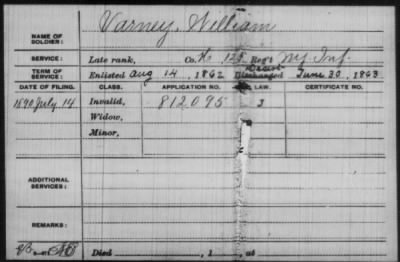 Varney, William
NAME OF SOLDIER:
SERVICE: Late rank, Co. H, 125 Reg't NY Inf.
TERM OF SERVICE: Enlisted Aug 14, 1862 Discharged June 30, 1863
DATE OF FILING. CLASS. APPLICATION NO. LAW. CERTIFICATE NO.
1890 July 14 Invalid, 812095 3
Widow,
Minor,
ADDITIONAL SERVICES:
REMARKS:
Died , 1 , at